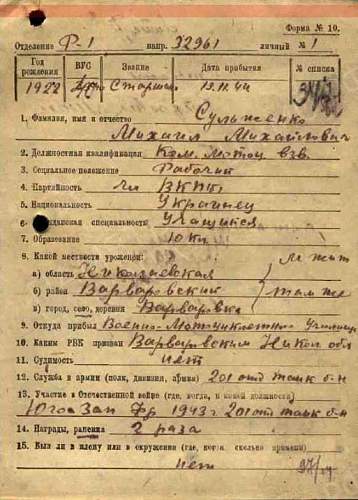 Форма № 10.
Отделение Р-1 напр. 32961 личный № 1
Год рождения ВУС Звание Дата прибытия № списка
1922 Старшин 19.11.44
1. Фамилия, имя и отчество Сульженко
Михаил Михайлович
2. Должностная квалификация Ком. мотоц взв.
3. Социальное положение Рабочий
4. Партийность чл ВКПб
5. Национальность Украинец
6. Гражданская специальность Учащийся
7. Образование 10 кл
8. Какой местности уроженец:
а) область Николаевская
б) район Варваровский там же
в) город, село, деревня Варваровка
9. Откуда прибыл Военно-Мотоциклетно училищ
10. Каким РВК призван Варваровским Никол обл
11. Судимость нет
12. Служба в армии (полк, дивизия, армия) 201 отд танк б-н
13. Участие в Отечественной войне (где, когда, в какой должности)
Юго Зап Фр 1943 г 201 отд танк б-н
14. Награды, ранения 2 раза
15. Был ли в плену или в окружении (где, когда, сколько времени)
нет